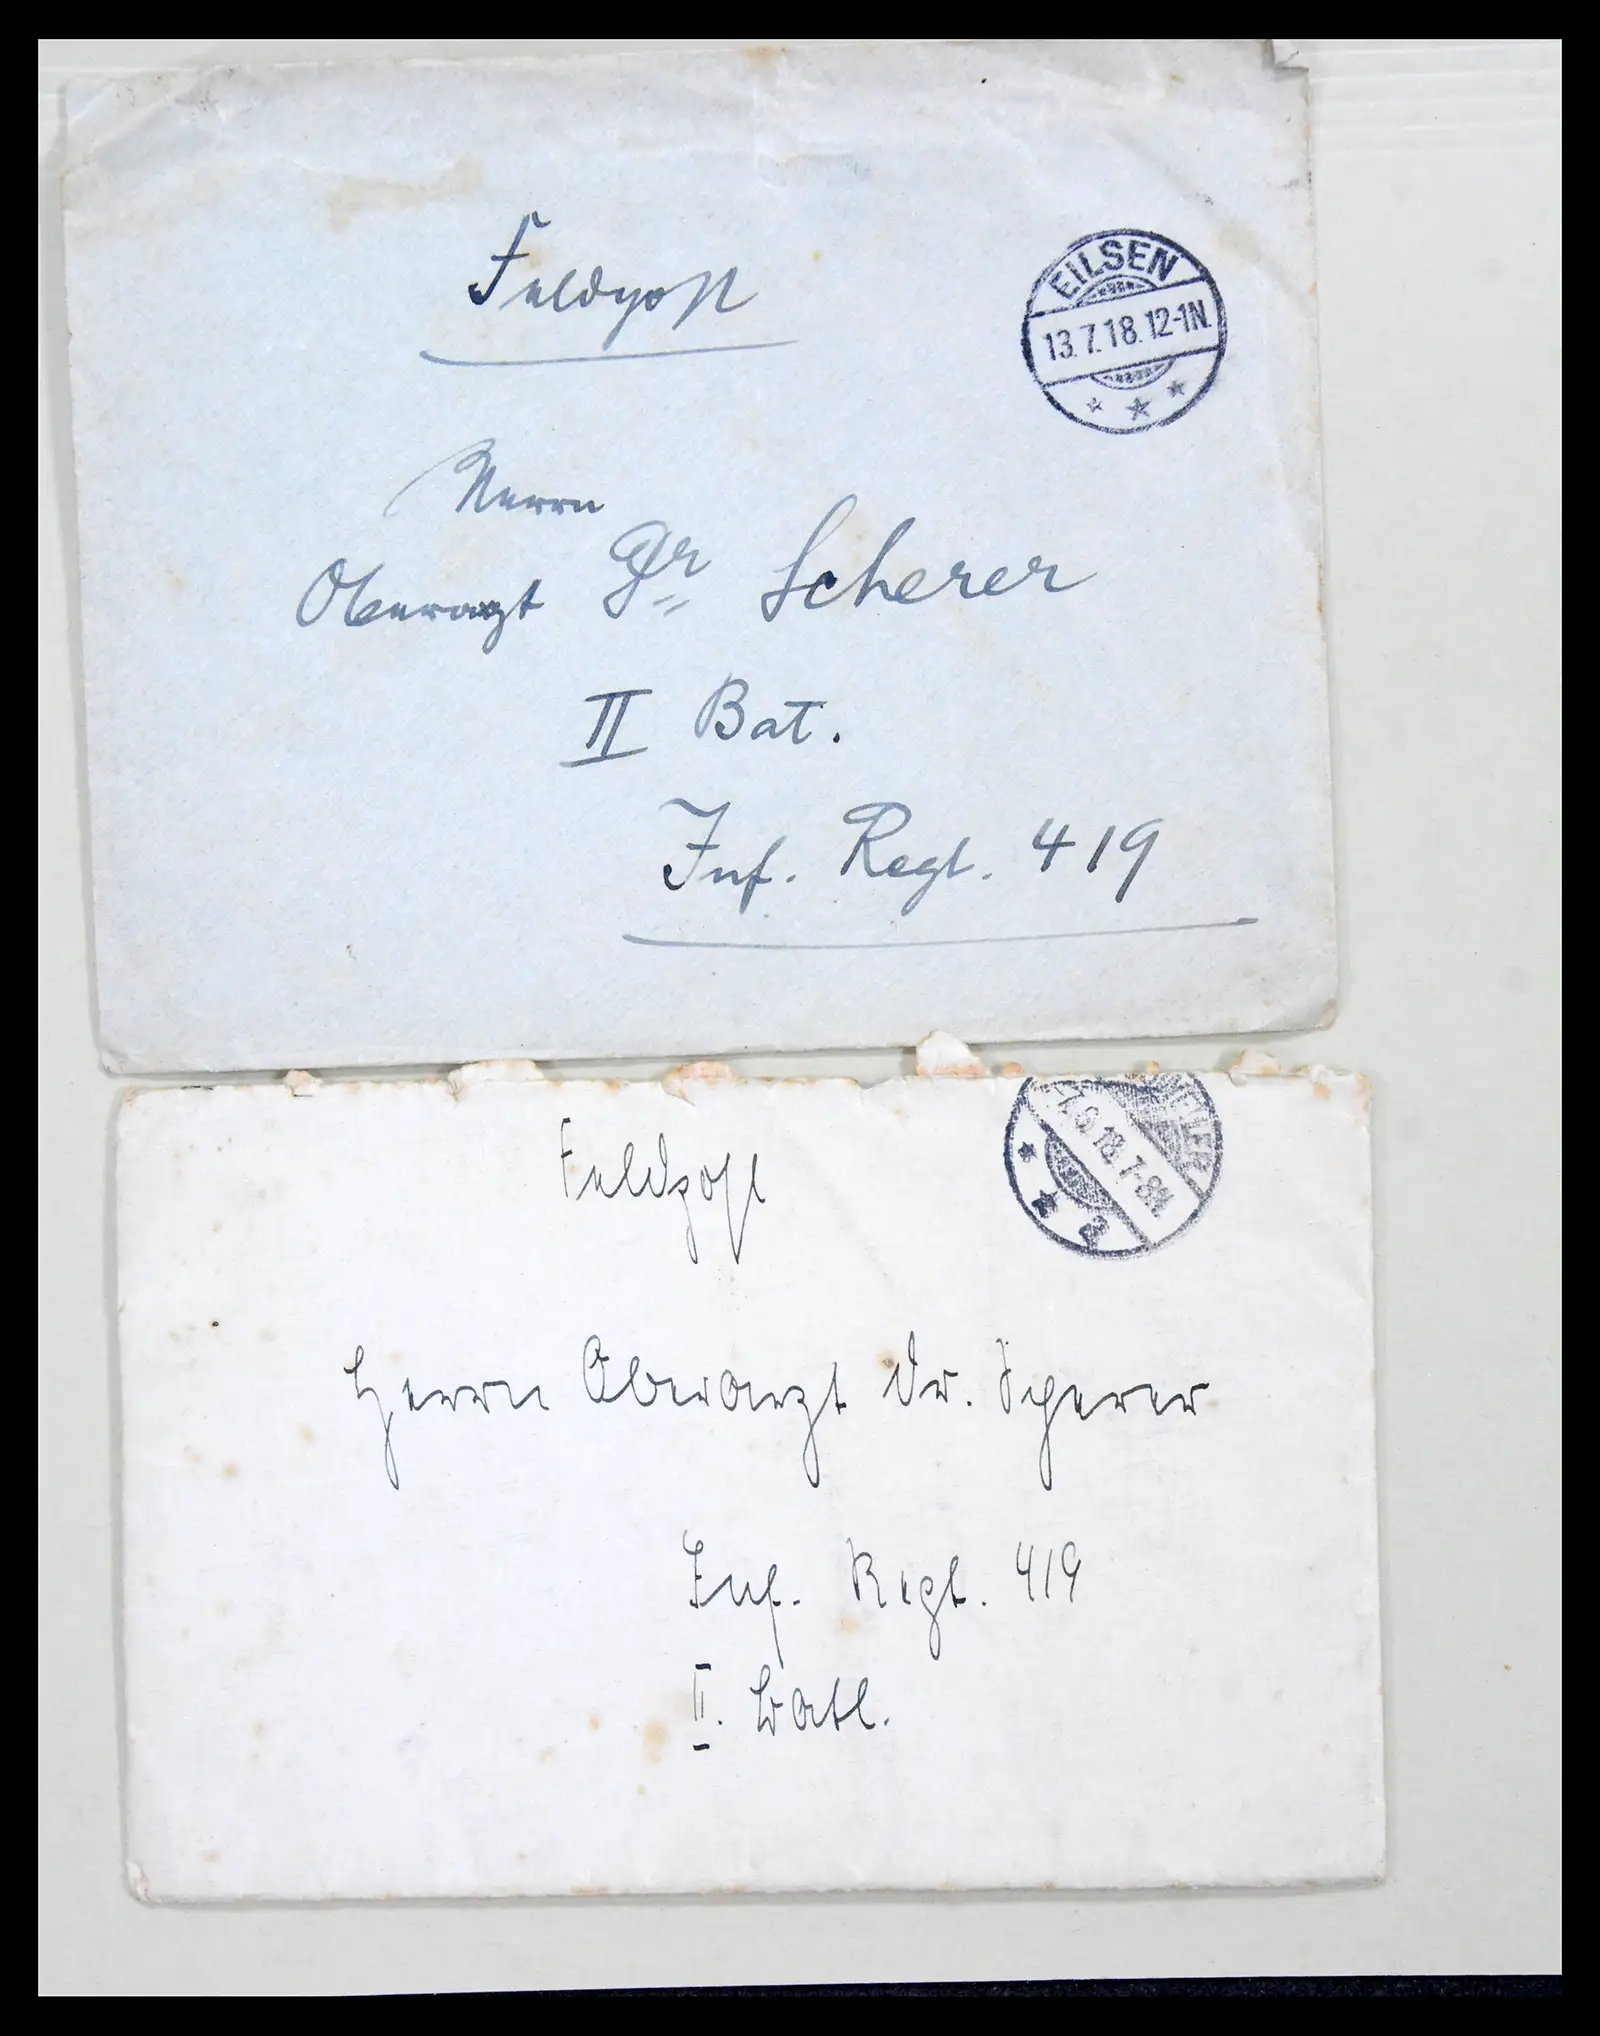 Feldpost
EILSEN
13.7.18.12-1N.
Herrn
Oberarzt Dr Scherer
II Bat.
Inf. Regt. 419
Feldpost
18.7-8N.
Herrn Oberarzt Dr. Scherer
Inf. Regt. 419
II. Batl.